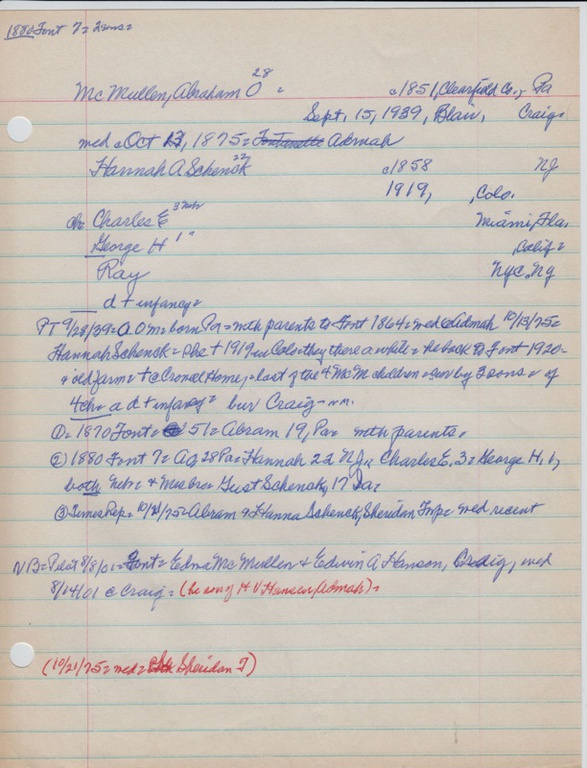 1880 Font 7= 2 sons=
McMullen, Abraham O 28 = c1851, Clearfield Co., Pa
Sept. 15, 1939, Blair, Craig=
med = Oct 13, 1875= Admah
Hannah A Schenck 22 c1858 NJ
1919, , Colo.
ch= Charles E 3 Nebr Miami, Fla.
George H 1 " , Calif=
Ray Nyc, Ny
d + infancy=
PT 9/28/39= A O M= born Pa= mth parents to Font 1864= med @ Admah 10/13/75=
Hannah Schenck = she + 1919 in Colo= they there a while = he back to Font 1920=
old farm= + @ Crowell Home, = last of the 4 McM children = surv by 3 sons = of
4 ch= a d + infancy= bur Craig - n.m.
①= 1870 Font= 51= Abram 19, Pa= mth parents.
② 1880 Font 7= A O, 28 Pa= Hannah 22 NJ, Charles E, 3= George H, 1,
both Nebr= & Mrs bro= Gust Schenck, 17 Ia=
③ Times Rep= 10/21/75= Abram & Hanna Schenck, Sheridan Twp= med recent
NB= Pilot 8/8/01= Font= Edma McMullen & Edwin A Hanson, Craig, med
8/04/01 @ Craig= (he son of H V Hansen, Admah)=
(10/21/75= med= Sheridan T)